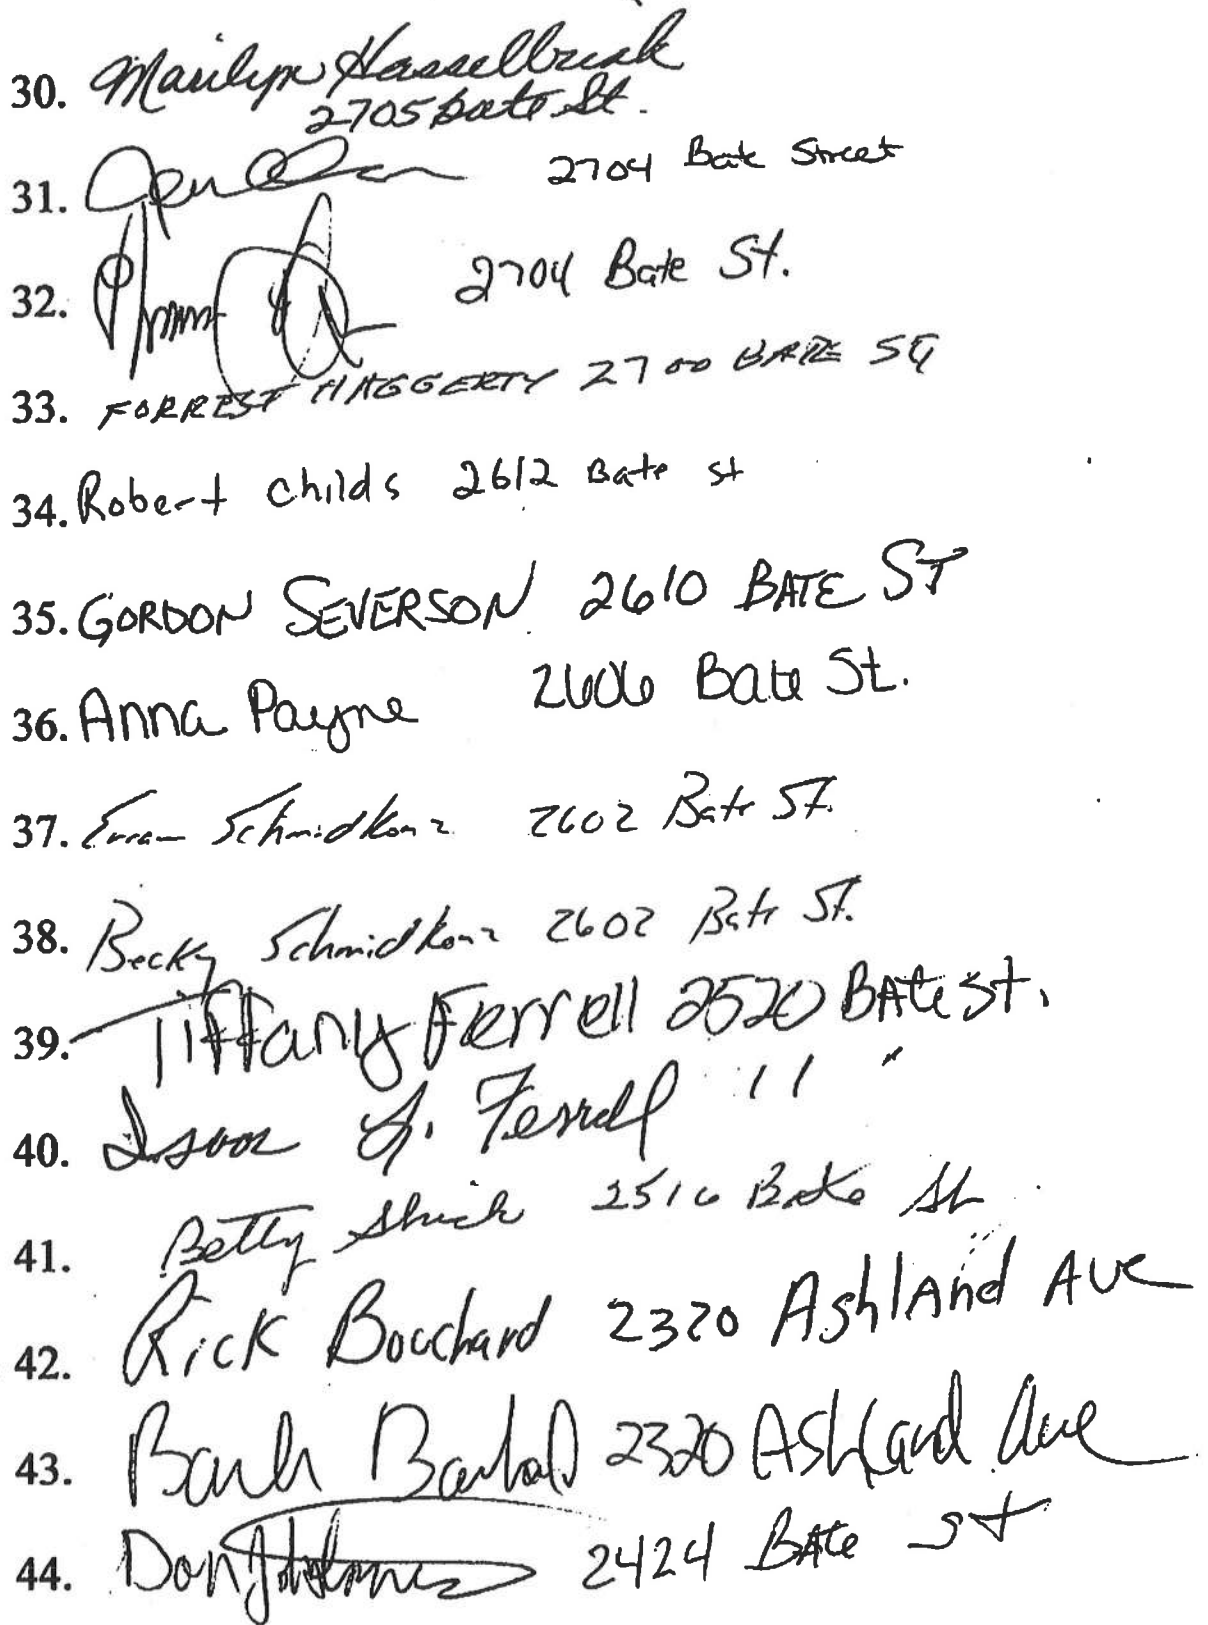 30. Marilyn Hasselbrink
2705 Bate St.
31. 2704 Bate Street
32. 2704 Bate St.
33. FORREST HAGGERTY 2700 BATE ST
34. Robert Childs 2612 Bate st
35. GORDON SEVERSON 2610 BATE ST
36. Anna Payne 2606 Bate St.
37. Schmidkonz 2602 Bate St.
38. Becky Schmidkonz 2602 Bate St.
39. Tiffany Ferrell 2520 BAte St.
40. J. Ferrell " "
41. Betty Shick 2516 Bate St
42. Rick Bouchard 2320 Ashland Ave
43. Barb 2320 Ashland Ave
44. Don 2424 BAte st